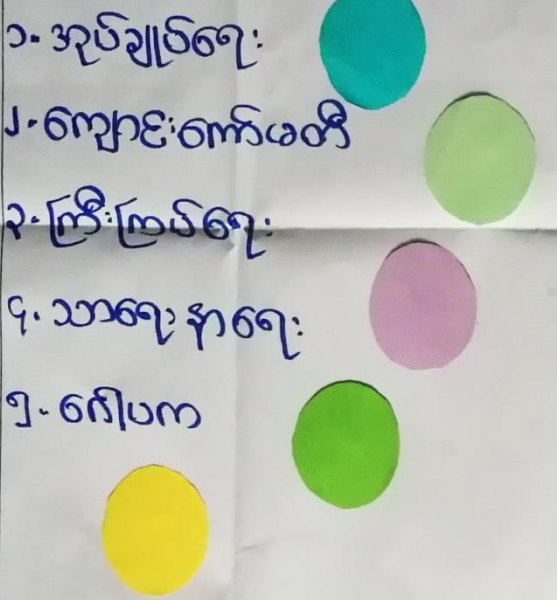 ၁. အုပ်ချုပ်ရေး
၂. ကျောင်းကော်မတီ
၃. ကြီးကြပ်ရေး
၄. သာရေး နာရေး
၅. ဂေါပက